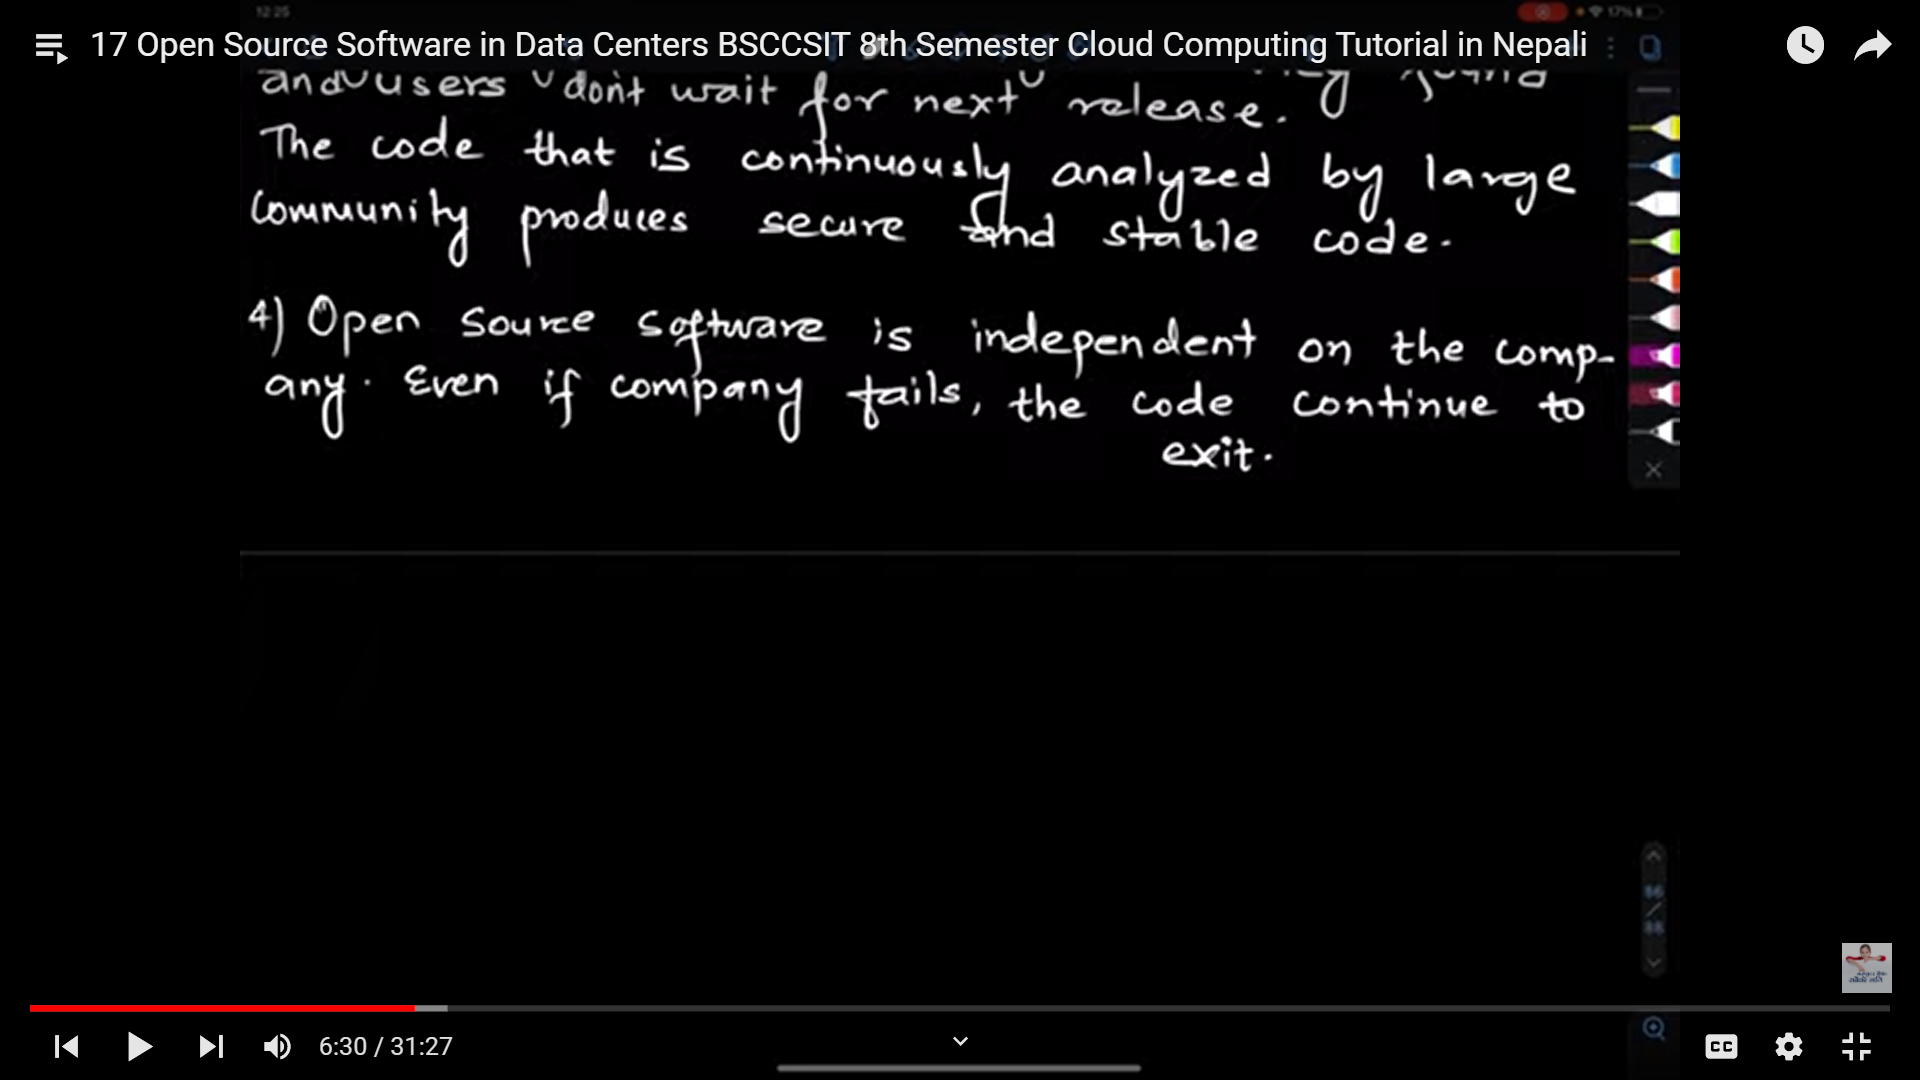 12:25
17%
17 Open Source Software in Data Centers BSCCSIT 8th Semester Cloud Computing Tutorial in Nepali
and users don't wait for next release.
The code that is continuously analyzed by large
community produces secure and stable code.
4) Open source software is independent on the comp-
any. Even if company fails, the code continue to
exit.
86
/
88
6:30 / 31:27
CC